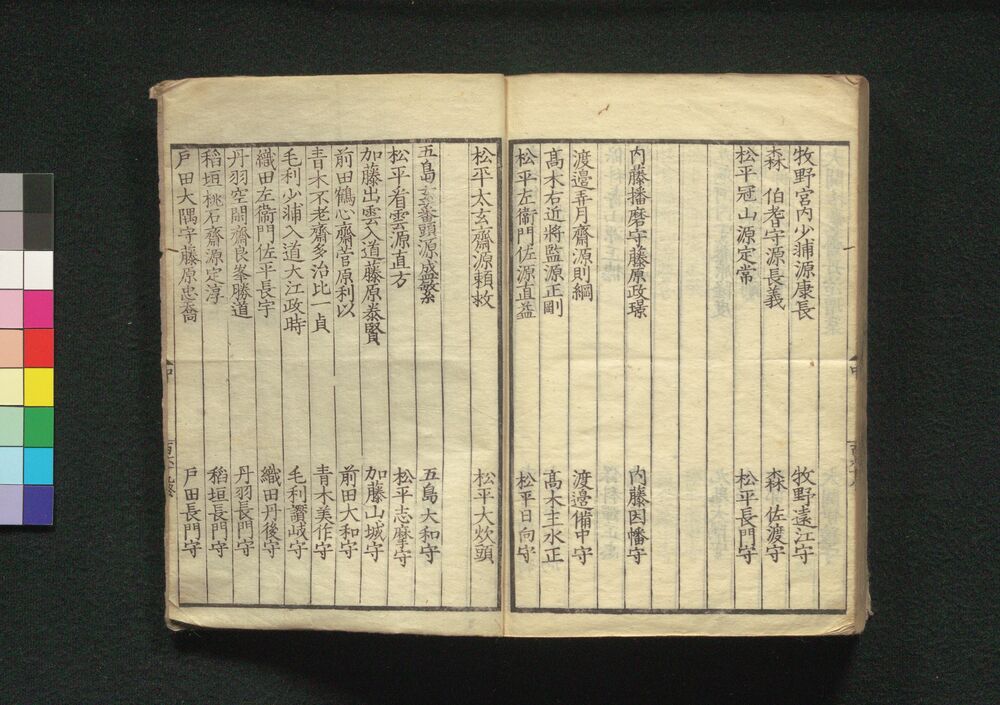 牧野宮内少輔源康長 牧野遠江守
森 伯耆守源長義 森 佐渡守
松平冠山源定常 松平長門守
内藤播磨守藤原政璟 内藤因幡守
渡邉弄月齋源則綱 渡邉備中守
髙木右近將監源正剛 髙木主水正
松平左衞門佐源直益 松平日向守
松平太玄齋源頼救 松平大炊頭
五島玄蕃頭源盛繁 五島大和守
松平看雲源直方 松平志摩守
加藤出雲入道藤原泰賢 加藤山城守
前田鶴心齋菅原利以 前田大和守
青木不老齋多治比一貞 青木美作守
毛利少輔入道大江政時 毛利讃岐守
織田左衞門佐平長宇 織田丹後守
丹羽空閑齋良峯勝道 丹羽長門守
稻垣桃石齋源定淳 稻垣長門守
戸田大隅守藤原忠喬 戸田長門守
中
中